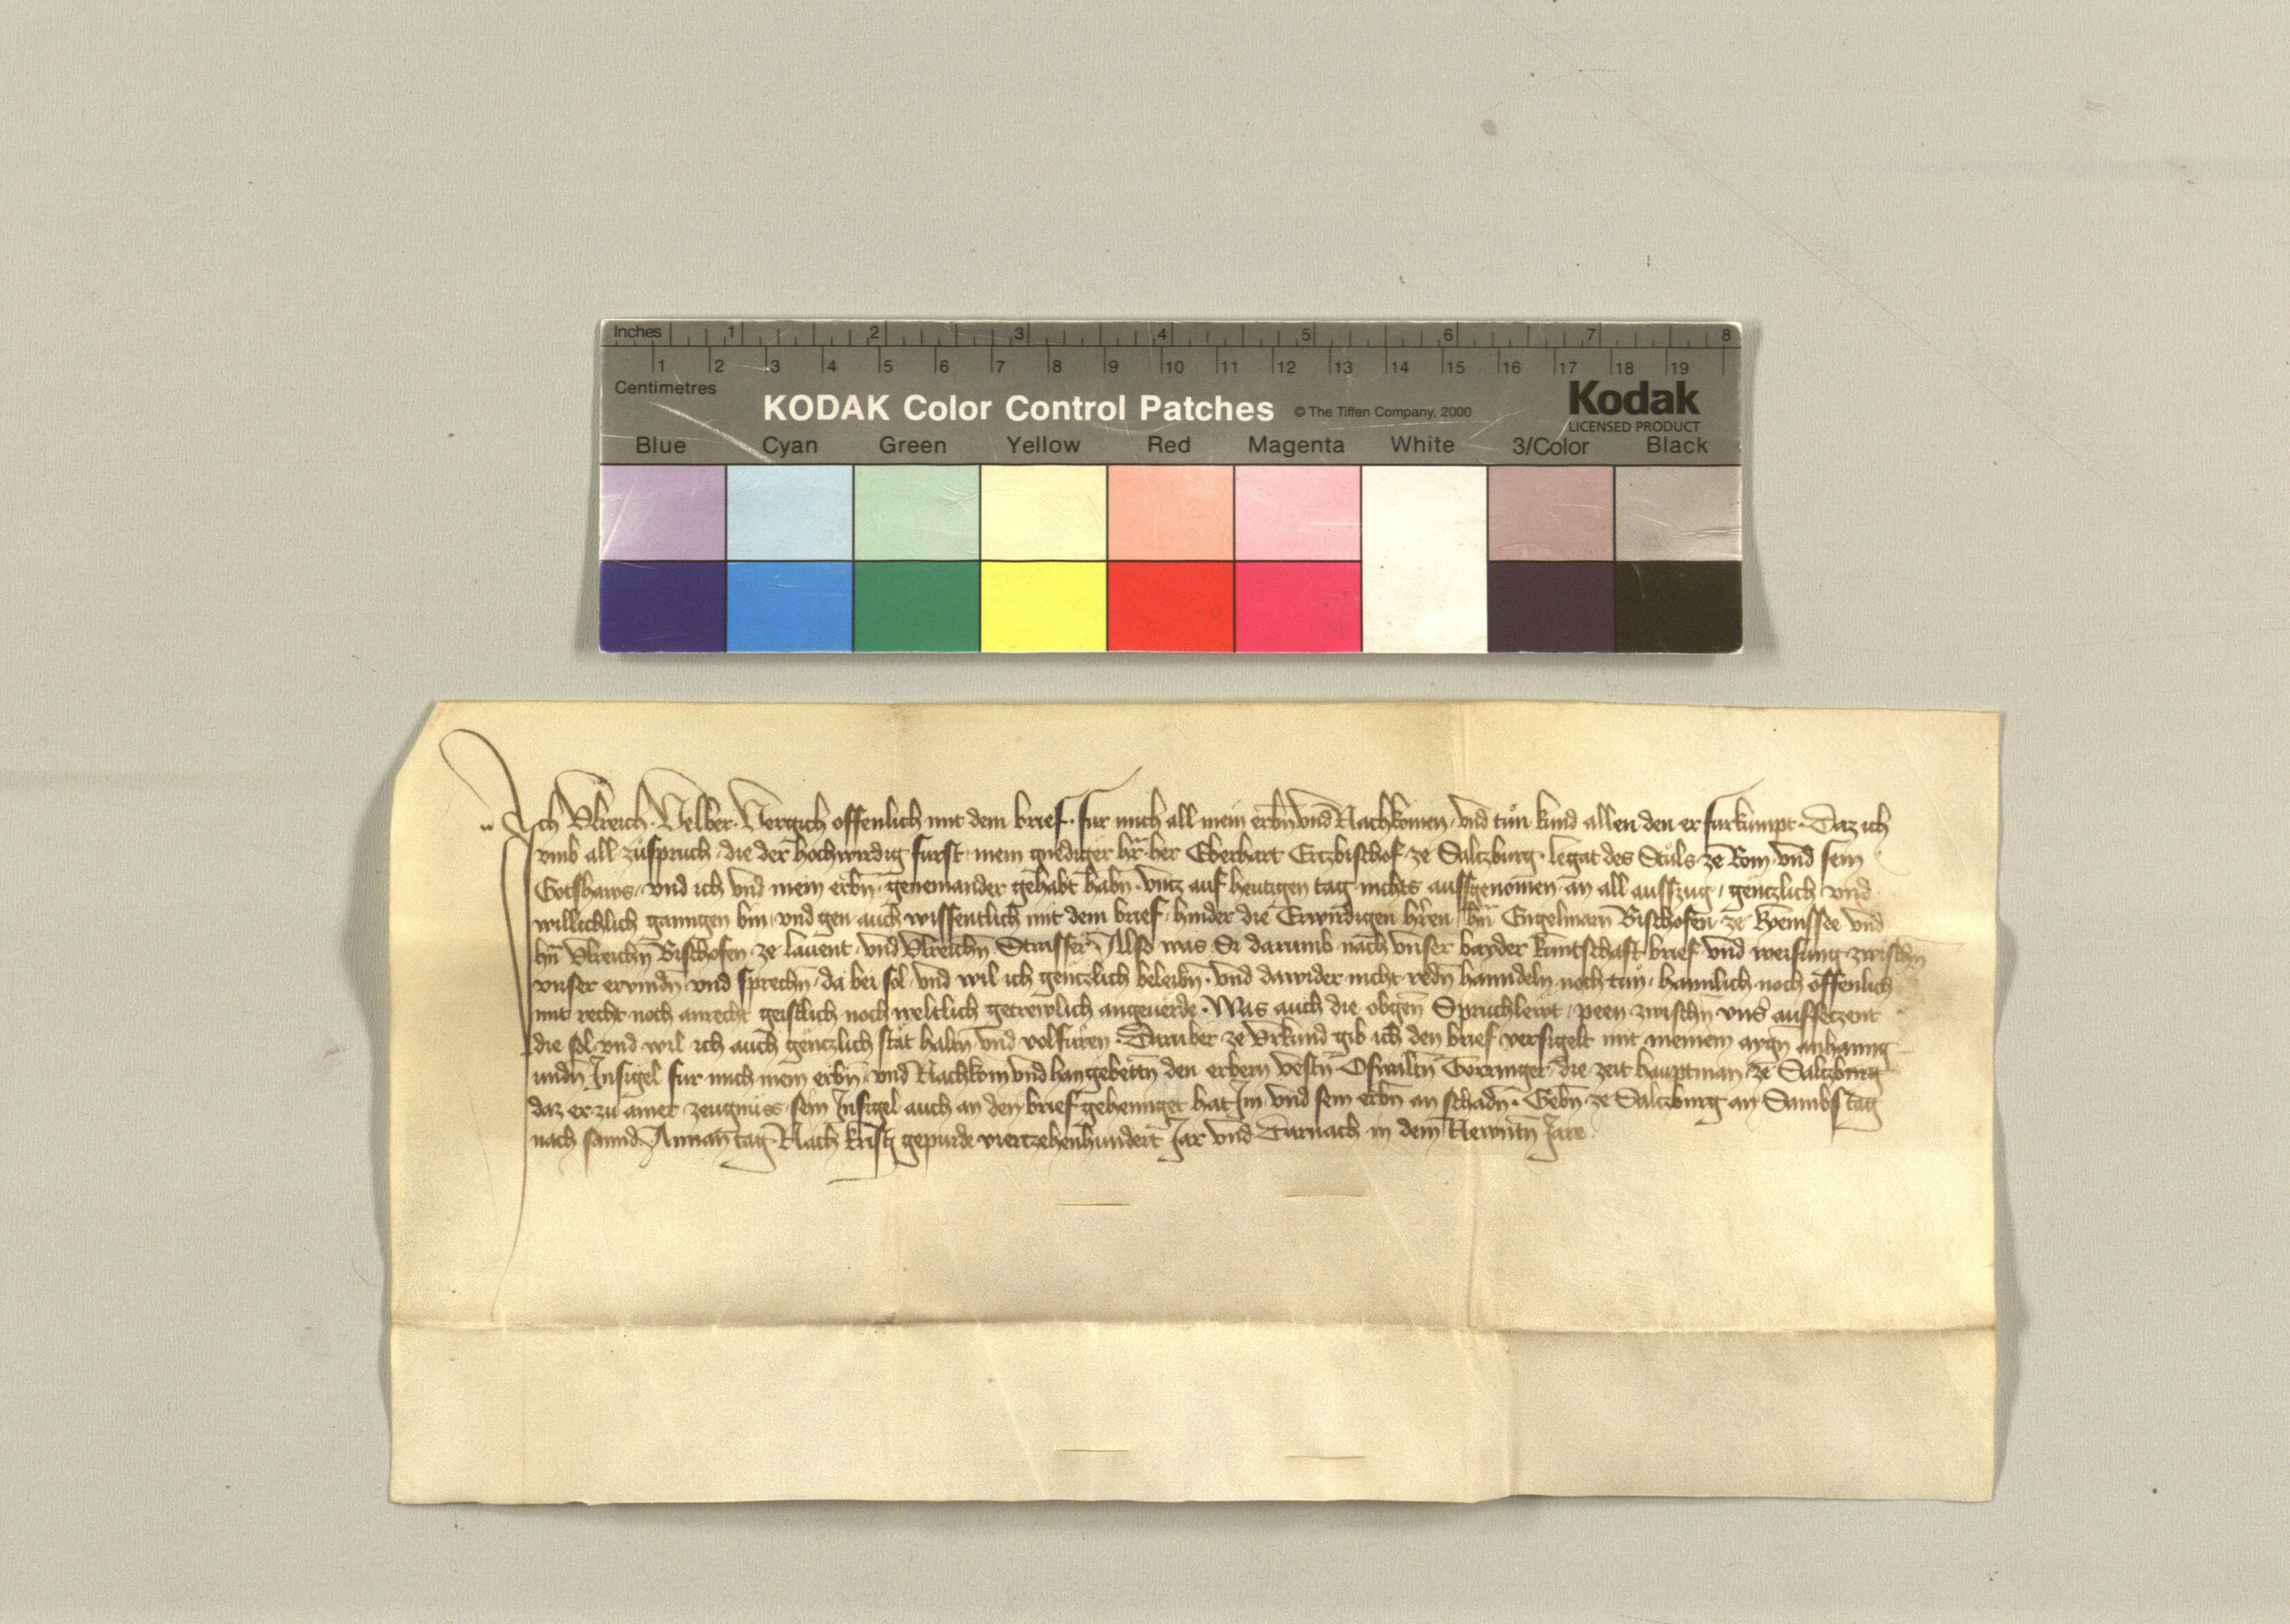 Inches 1 2 3 4 5 6 7 8
1 2 3 4 5 6 7 8 9 10 11 12 13 14 15 16 17 18 19
Centimetres
KODAK Color Control Patches © The Tiffen Company, 2000 Kodak
LICENSED PRODUCT
Blue Cyan Green Yellow Red Magenta White 3/Color Black
Ich Vlreich Velber Vergich offenlich mit dem brief fur mich all mein erbn̄ vnd Nachkomen vnd tůn kund allen den er furkumpt Daz ich
vmb all zůspruch die der hochwirdig furst mein gnediger hr̄ her Eberhart Ertzbischof ze Saltzburg legat des Stůls ze Rom vnd sein
Gotshaws vnd ich vnd mein erbn̄ geneinander gehabt habn̄ vntz auf hewtigen tag nichts aufsgenomen an all aufszug gentzlich vnd
willichlich gangen bin vnd gen auch wissentlich mit dem brief hinder die Erwirdigen hr̄ren hn̄ Engelmarn Bischofen ze Kyemssee vnd
hn̄ Vlreichn̄ Bischofen ze lauent vnd Vlreichn̄ Strasser Also was Si darumb nach vnser bayder kuntschaft brief vnd weisung zwischn̄
vnser ervindn̄ vnd sprechn̄ da bei sol vnd wil ich gentzlich beleibn̄ vnd dawider nicht redn̄ hanndeln noch tůn haimlich noch offenlich
mit recht noch anrecht geistlich noch weltlich getrewlich angeuerde Was auch die obgen̄ Spruchlewt peen zwischn̄ vns̄ aufsetzent
die sol vnd wil ich auch gentzlich stät haltn̄ vnd volfuren Daruber ze Vrkund gib ich den brief versigelt mit meinem aygn̄ anhanng
undn̄ Insigel fur mich mein erbn̄ vnd Nachkom vnd han gebettn̄ den erbern vestn̄ Oswaltn̄ Törringer die zeit hauptman ze Saltzburg
daz er zu ainer zeugnůss sein Insigel auch an den brief gehenngt hat Im vnd sein erbn̄ an schadn̄ Gebn̄ ze Saltzburg an Sambstag
nach sannd Annan tag Nach kristi gepurde viertzehenhundert Jar vnd Darnach in dem Newntn̄ Jare